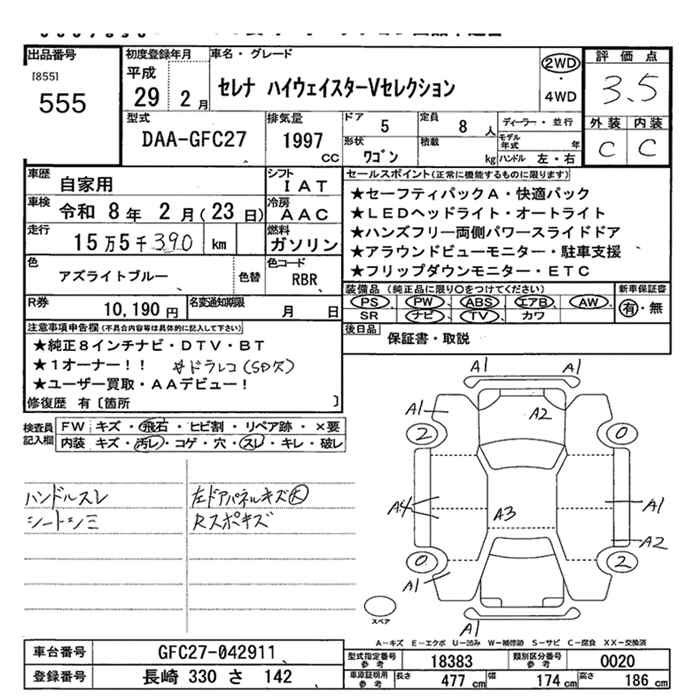 出品番号
[855]
555
初度登録年月
平成
29 2月
車名・グレード
セレナ ハイウェイスターVセレクション
2WD
・
4WD
評価点
3.5
外装 内装
C C
型式
DAA-GFC27
排気量
1997
CC
ドア
5
定員
8人
形状
ワゴン
積載
kg
ディーラー・並行
モデル年式 年
ハンドル 左・右
車歴
自家用
シフト
IAT
車検
令和 8年 2月(23日)
冷房
AAC
走行
15万5千390 km
燃料
ガソリン
色
アズライトブルー
色替
色コード
RBR
R券
10,190円
名変通知期限
月 日
セールスポイント(正常に機能するものに限ります)
★セーフティパックA・快適パック
★LEDヘッドライト・オートライト
★ハンズフリー両側パワースライドドア
★アラウンドビューモニター・駐車支援
★フリップダウンモニター・ETC
装備品(純正品に限り○をつけてください)
PS・PW・ABS・エアB・AW・
SR ナビ・TV・カワ
新車保証書
有・無
後日品
保証書・取説
注意事項申告欄(不具合内容等は具体的に記入して下さい)
★純正8インチナビ・DTV・BT
★1オーナー!! #ドラレコ(SD欠)
★ユーザー買取・AAデビュー!
修復歴 有〔箇所 〕
検査員記入欄
FW キズ・飛石・ヒビ割・リペア跡・×要
内装 キズ・汚レ・コゲ・穴・スレ・キレ・破レ
ハンドルスレ
シートシミ
左ドアパネルキズ大
Rスポキズ
A1
A1
A1
A2
A1
2
0
A4
A3
A1
A2
0
2
A1
A1
スペア
A-キズ E-エクボ U-凹み W-補修跡 S-サビ C-腐食 XX-交換済
車台番号
GFC27-042911
登録番号
長崎 330 さ 142
型式指定番号
参考
18383
類別区分番号
参考
0020
車庫証明用
参考
長さ
477 cm
幅
174 cm
高さ
186 cm